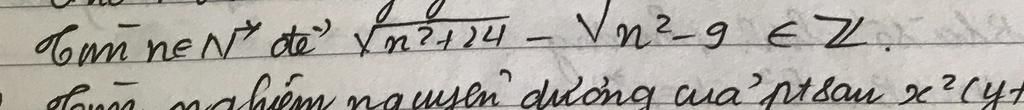 Tìm n ∈ N* để √n²+24 - √n²-9 ∈ Z.
Tìm nghiệm nguyên dương của pt sau x²(y+